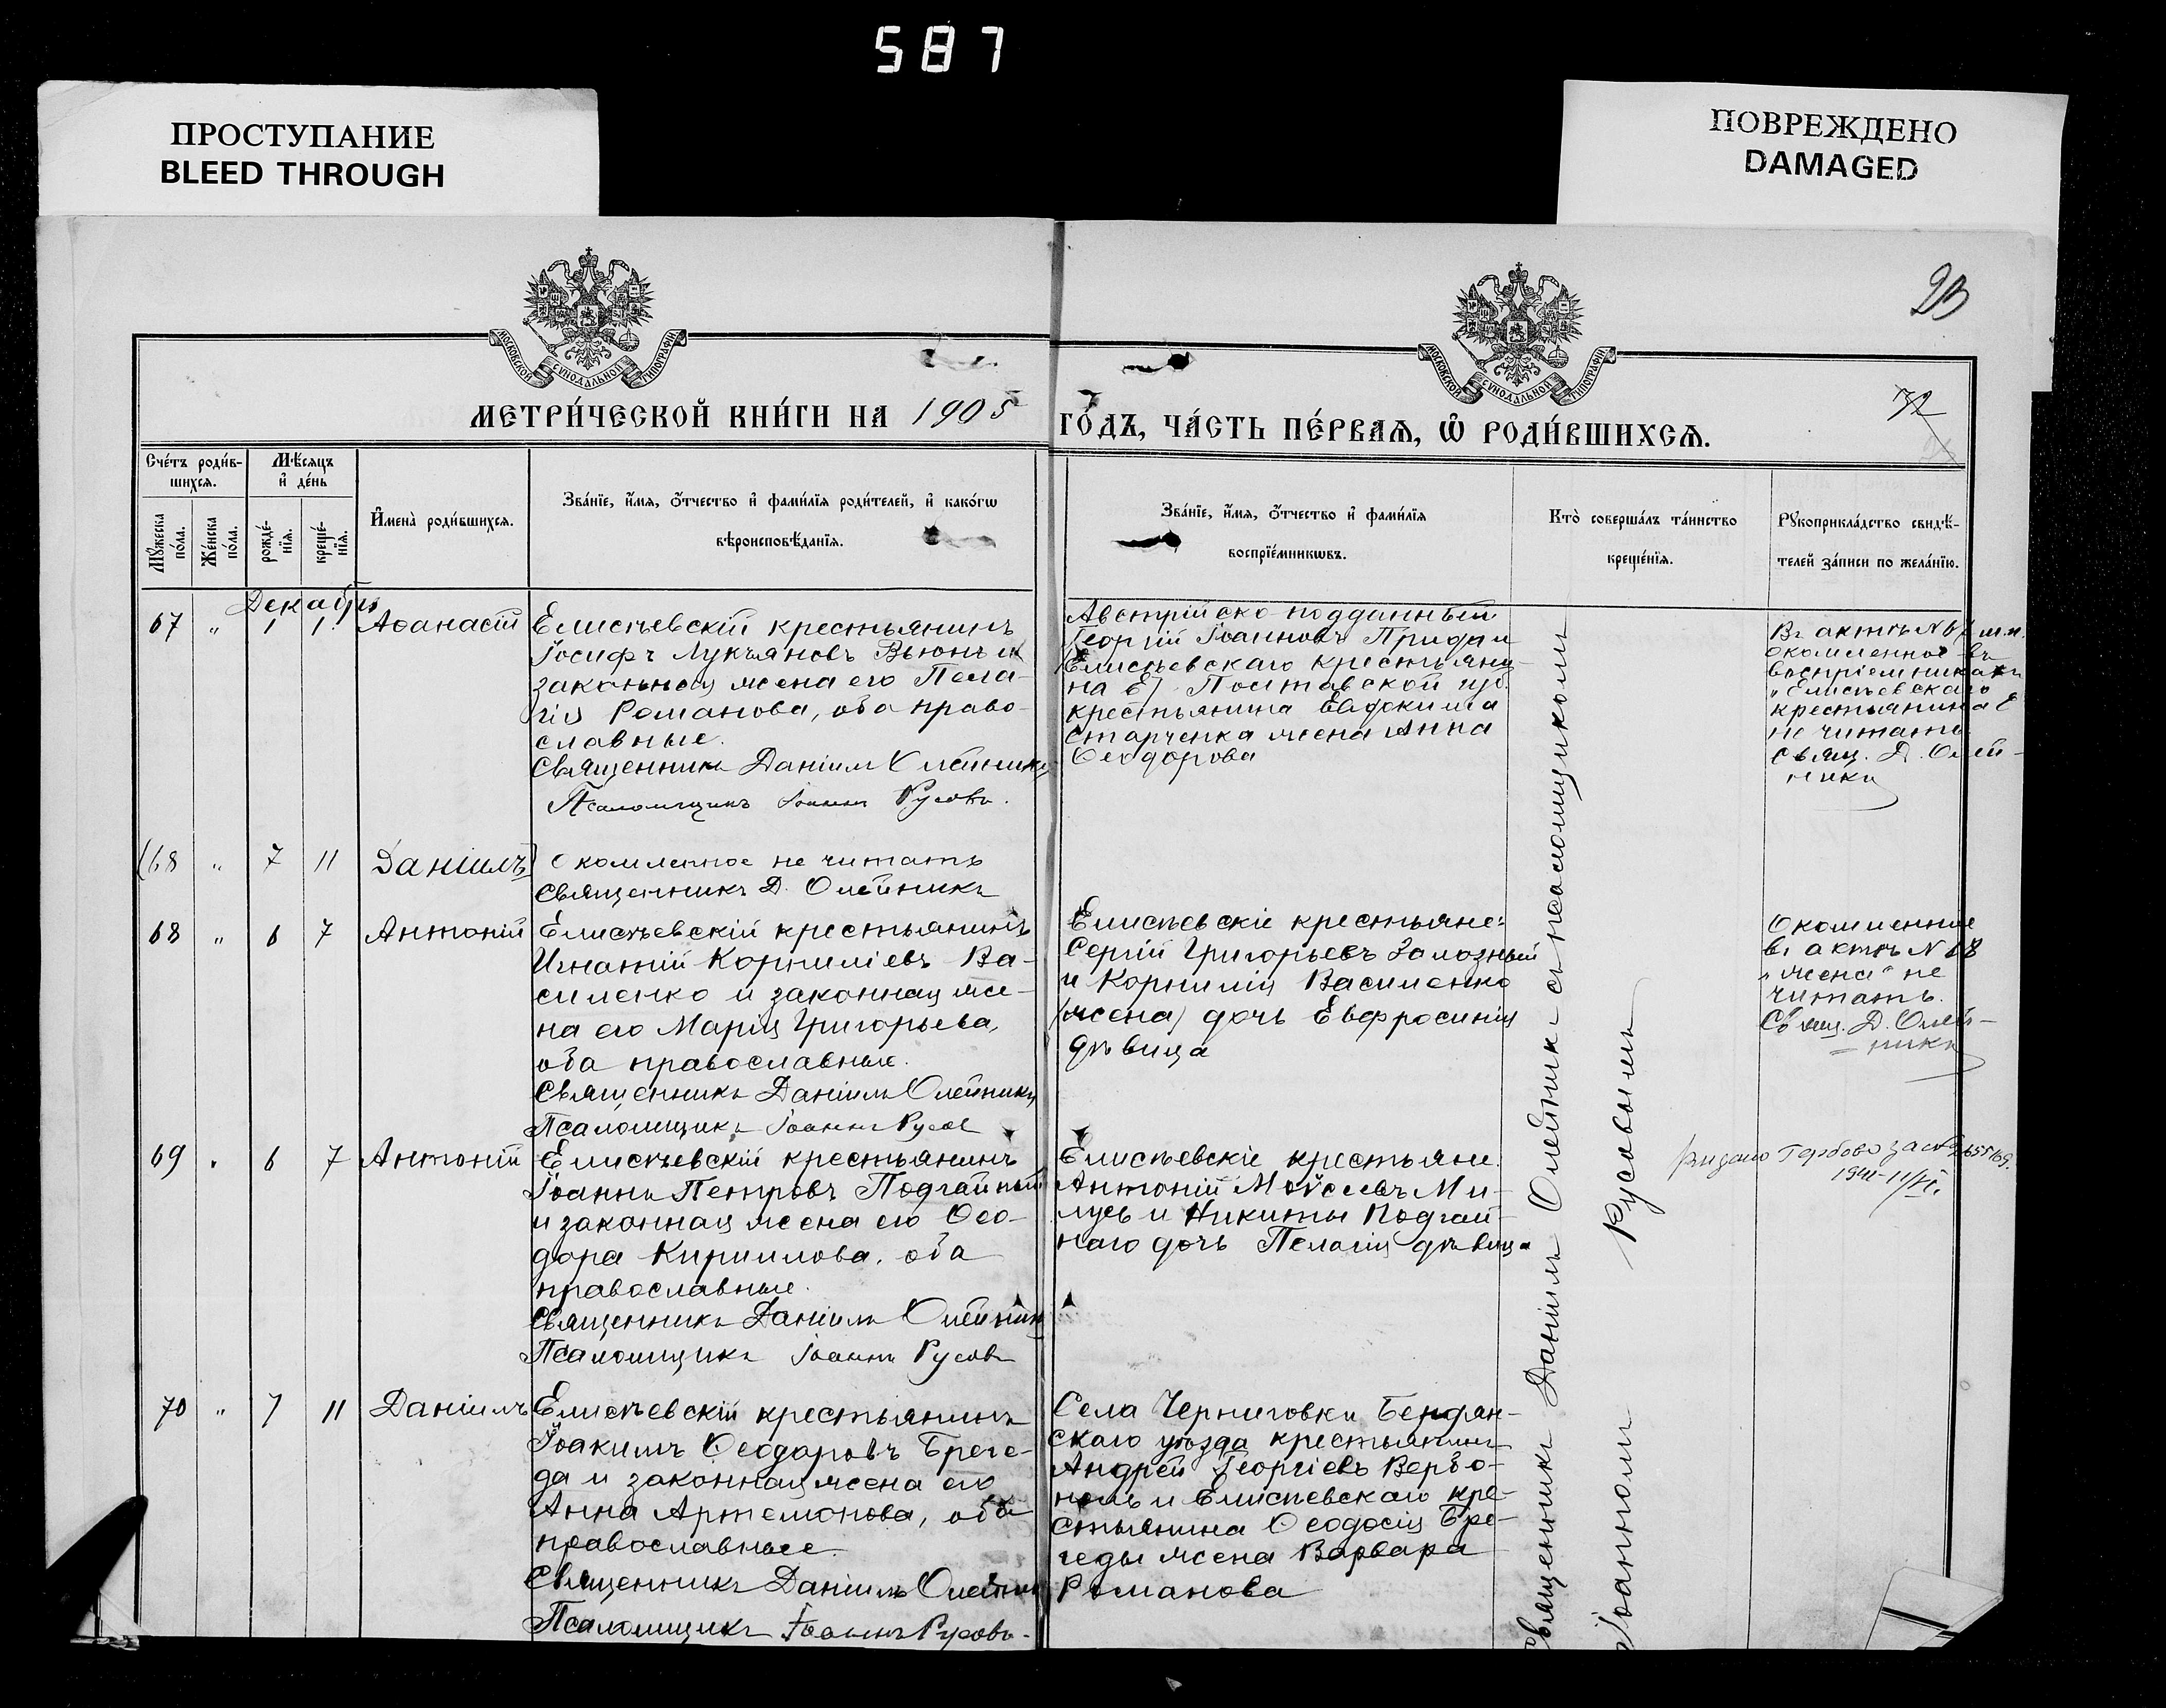 587
ПРОСТУПАНИЕ
BLEED THROUGH
ПОВРЕЖДЕНО
DAMAGED
МОСКОВСКОЙ СУНОДАЛЬНОЙ ТИПОГРАФІИ
МОСКОВСКОЙ СУНОДАЛЬНОЙ ТИПОГРАФІИ
32
МЕТРИ́ЧЕСКОЙ КНИ́ГИ НА 1905
ГО́ДЪ, ЧА́СТЬ ПЕ́РВАѦ, Ѡ҆ РОДИ́ВШИХСѦ.
Сче́тъ роди́в-
шихсѧ.
Мѣ́сяцъ
и҆ де́нь
Мꙋ́жеска по́ла.
Же́нска по́ла.
рожде́-нїѧ.
креще́-нїѧ.
И҆мена̀ роди́вшихсѧ.
Зва́нїе, и҆́мѧ, ѻ҆́тчество и҆ фами́лїѧ роди́телей, и҆ како́гѡ
вѣроисповѣ́данїѧ.
Зва́нїе, и҆́мѧ, ѻ҆́тчество и҆ фами́лїѧ
воспрїе́мникѡвъ.
Кто̀ соверша́лъ та́инство
креще́нїѧ.
Рꙋкоприкла́дство свидѣ́-
телей за́писи по жела́нїю.
Декабрь
67 " 1 1 Аѳанасій
Елисѣевскій крестьянинъ
Іосифъ Лукьяновъ Вьюнъ и
законная жена его Пела-
гія Романова, оба право-
славные.
Священникъ Даніилъ Олейникъ
Псаломщикъ Іоаннъ Русовъ.
Австрійско-подданный
Георгій Іоанновъ
Елисѣевскаго крестьяни-
на Е) Полтавской губ.
крестьянина Евдокима
Старченка жена Анна
Ѳеодорова
Въ актѣ № 67 м.п.
окомленное въ
воспріемникахъ
"Елисѣевскаго
крестьянина Е
не читать
Свящ. Д. Олей-
никъ
(68 " 7 11 Даніилъ)
Окомленное не читать
Священникъ Д. Олейникъ
68 " 6 7 Антоній
Елисѣевскій крестьянинъ
Игнатій Корниліевъ Ва-
силенко и законная же-
на его Марія Григорьева,
оба православные.
Священникъ Даніилъ Олейникъ
Псаломщикъ Іоаннъ Русов
Елисѣевскіе крестьяне:
Сергій Григорьевъ Залозный
и Корнилія Василенко
(жена) дочь Евфросинія
дѣвица
Окомленное
въ актѣ № 68
"жена" не
читать.
Свящ. Д. Олей-
никъ
69 " 6 7 Антоній
Елисѣевскій крестьянинъ
Іоаннъ Петровъ Подгайный
и законная жена его Ѳео-
дора Кириллова, оба
православные.
Священникъ Даніилъ Олейник
Псаломщикъ Іоаннъ Русовъ
Елисѣевскіе крестьяне
Антоній Мойсеевъ Ми-
лусь и Никиты Подгай-
наго дочь Пелагія дѣвица
70 " 7 11 Даніилъ
Елисѣевскій крестьянинъ
Іоакимъ Ѳеодоровъ Бреге-
да и законная жена его
Анна Артемонова, оба
православные.
Священникъ Даніилъ Олейник
Псаломщикъ Іоаннъ Русовъ.
Села Черниговки Бердян-
скаго уѣзда крестьянинъ
Андрей Георгіевъ Вербо-
поль и Елисѣевскаго кре-
стьянина Ѳеодосія Бре-
геды жена Варвара
Романова
Священникъ Даніилъ Олейникъ съ псаломщикомъ
Іоанномъ Русовымъ